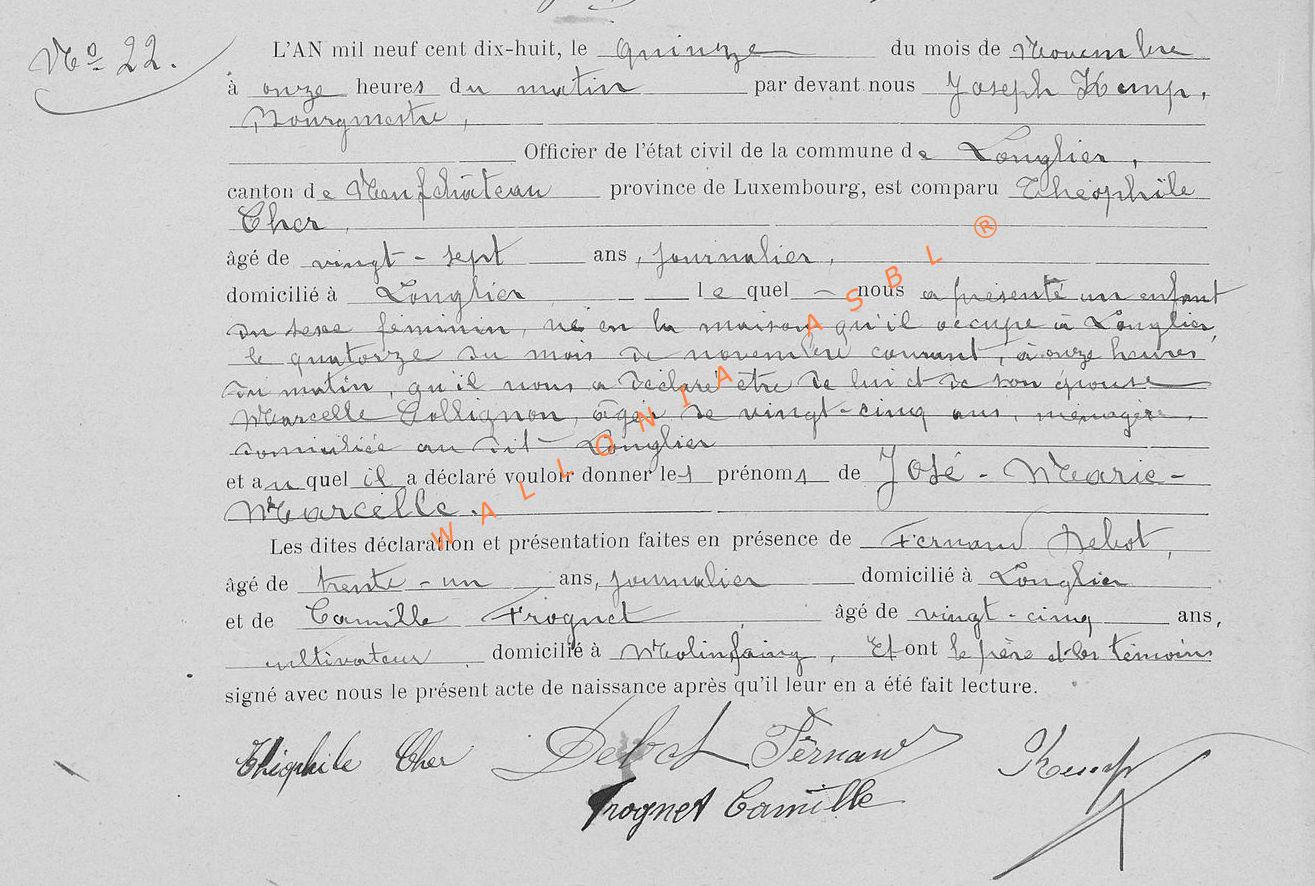 N° 22.
L'AN mil neuf cent dix-huit, le quinze du mois de Novembre
à onze heures du matin par devant nous Joseph Kemp,
Bourgmestre,
Officier de l'état civil de la commune de Longlier,
canton de Neufchâteau province de Luxembourg, est comparu Théophile
Cher,
âgé de vingt-sept ans, journalier,
domicilié à Longlier le quel nous a présenté un enfant
du sexe féminin, né en la maison qu'il occupe à Longlier,
le quatorze du mois de novembre courant, à onze heures
du matin, qu'il nous a déclaré être de lui et de son épouse
Marcelle Collignon, âgée de vingt-cinq ans, ménagère,
domiciliée au dit Longlier
et au quel il a déclaré vouloir donner les prénoms de José-Marie-
Marcelle.
Les dites déclaration et présentation faites en présence de Fernand Debot,
âgé de trente-un ans, journalier domicilié à Longlier
et de Camille Frognet âgé de vingt-cinq ans,
cultivateur domicilié à Molinfaing, Et ont le père et les témoins
signé avec nous le présent acte de naissance après qu'il leur en a été fait lecture.
Théophile Cher Debot Fernand Kemp
Frognet Camille
WALLONIA ASBL ®